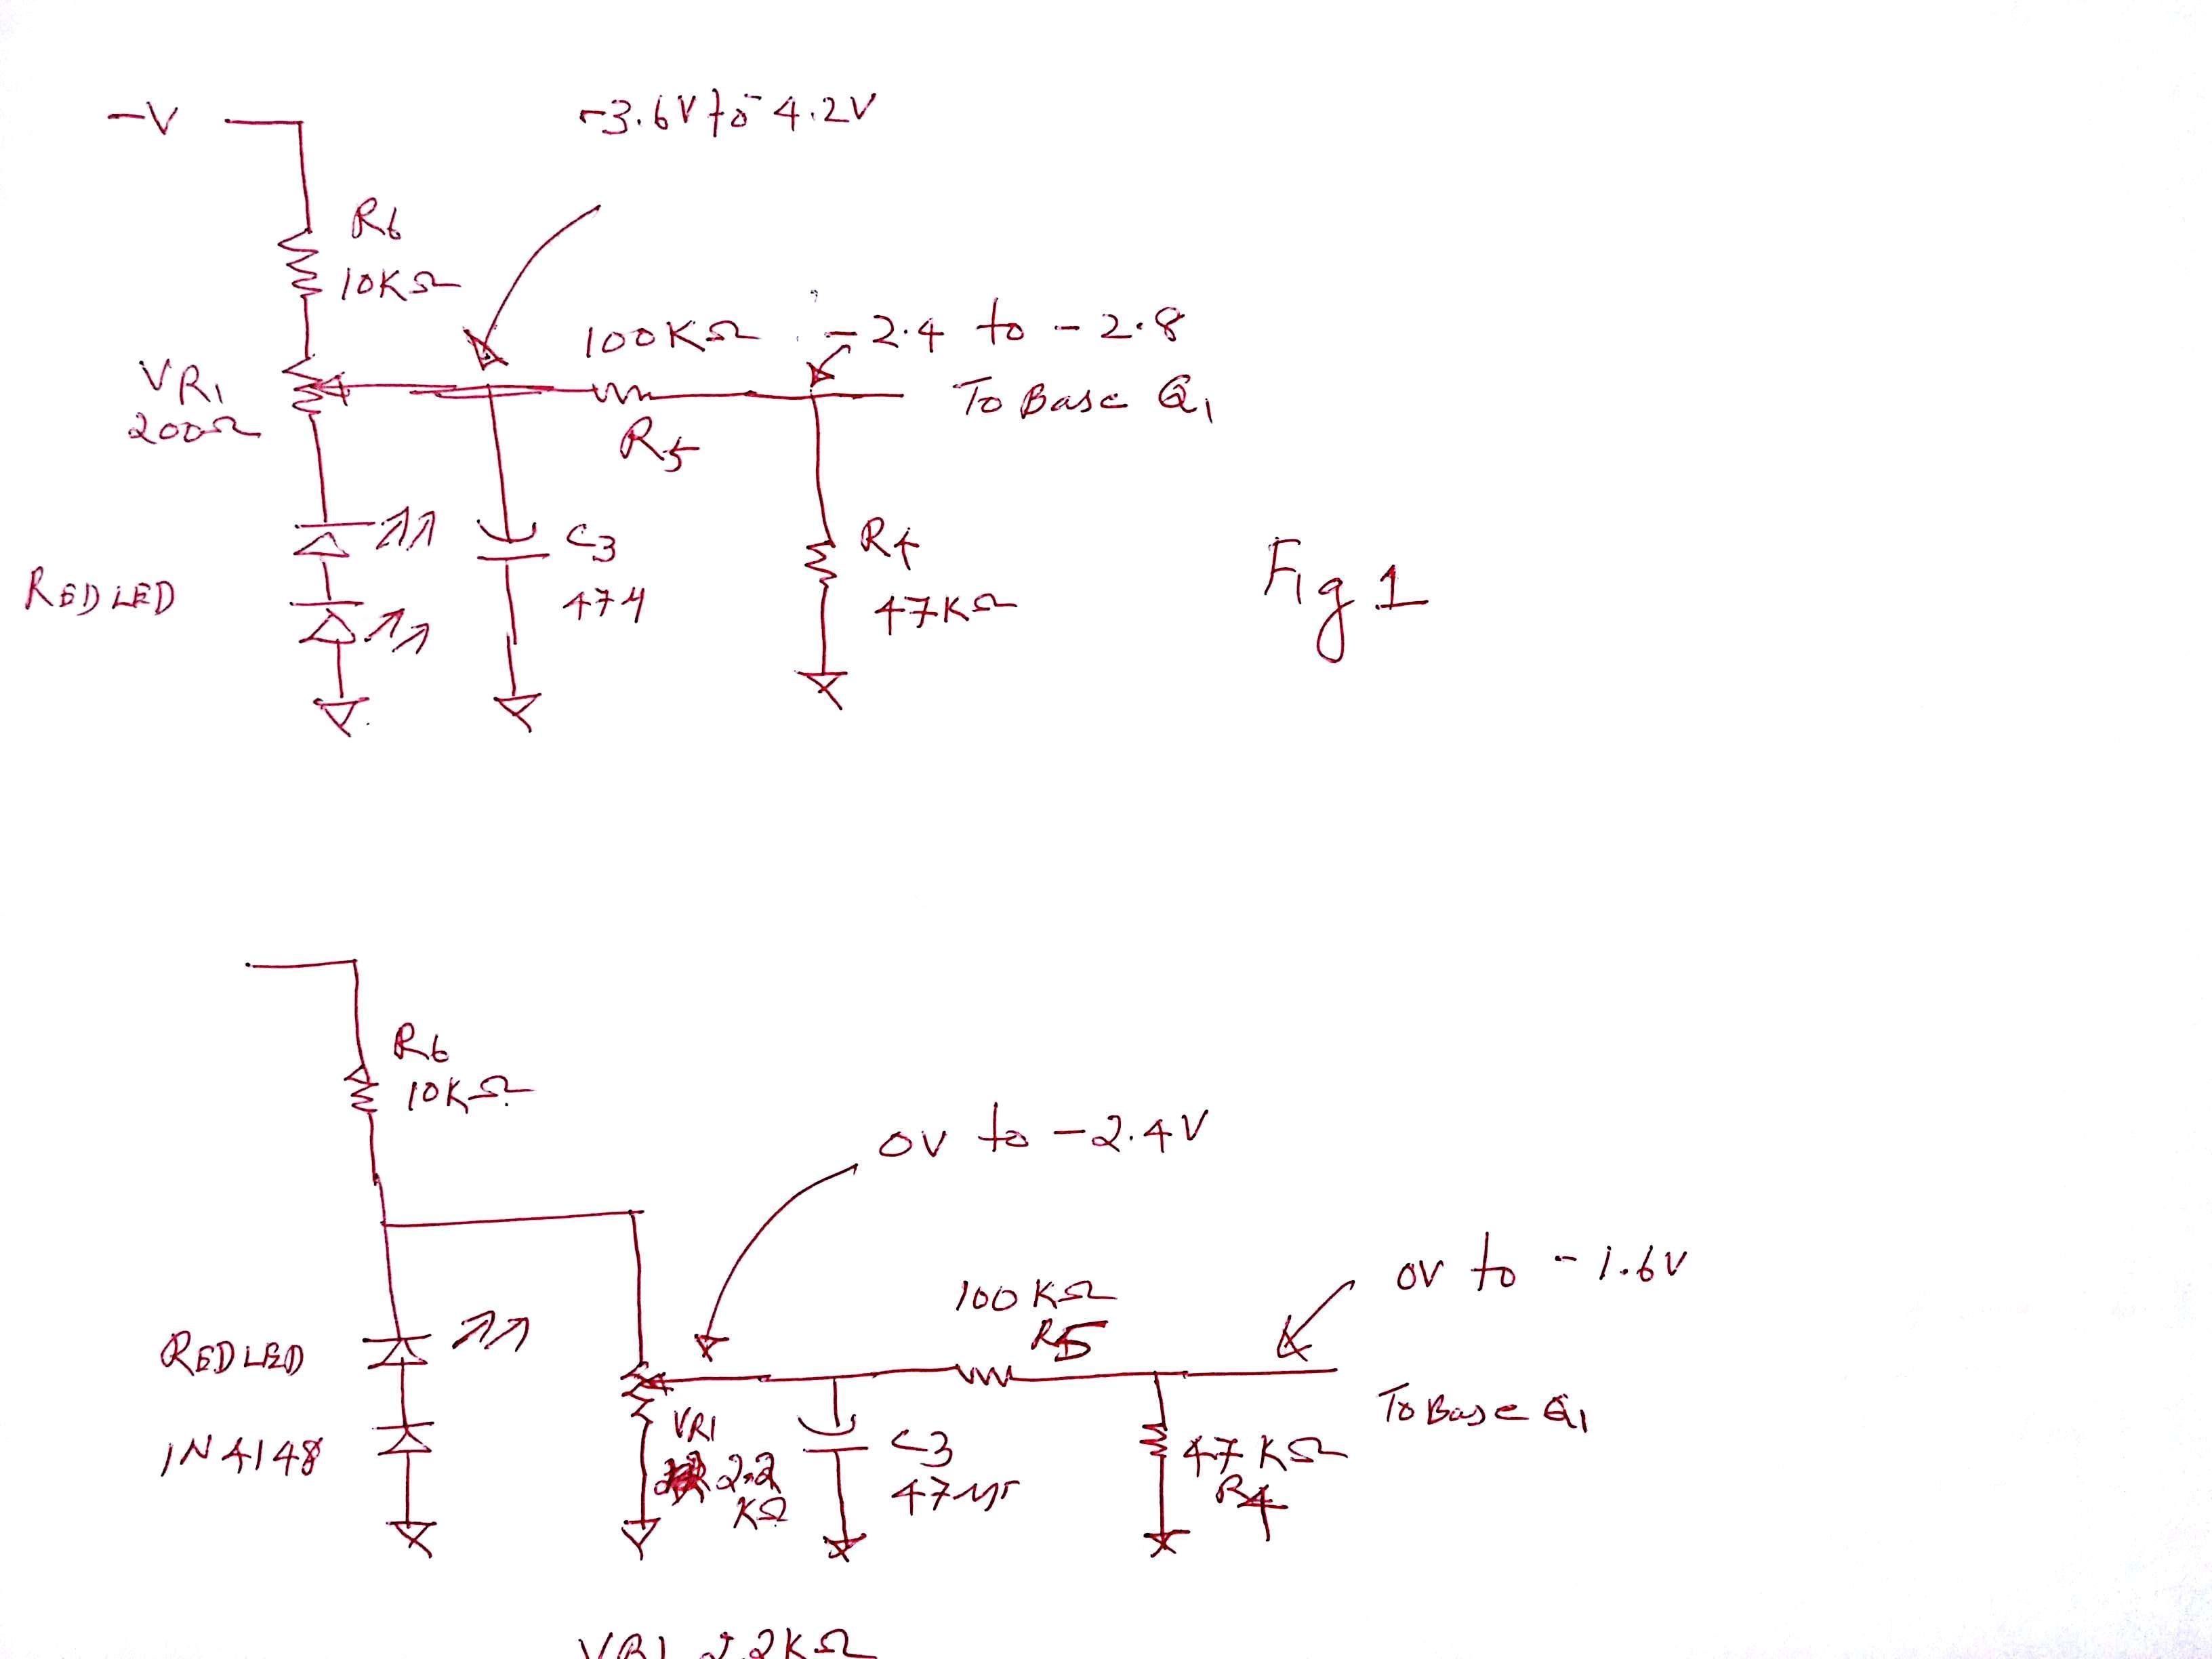 -V
-3.6V to -4.2V
R6
10KΩ
100KΩ
-2.4 to -2.8
VR1
200Ω
R5
To Base Q1
RED LED
C3
47µ
R4
47KΩ
Fig 1
R6
10KΩ
0V to -2.4V
0V to -1.6V
100KΩ
R5
RED LED
1N4148
VR1
2.2
KΩ
C3
47µF
47KΩ
R4
To Base Q1
VR1 2.2KΩ